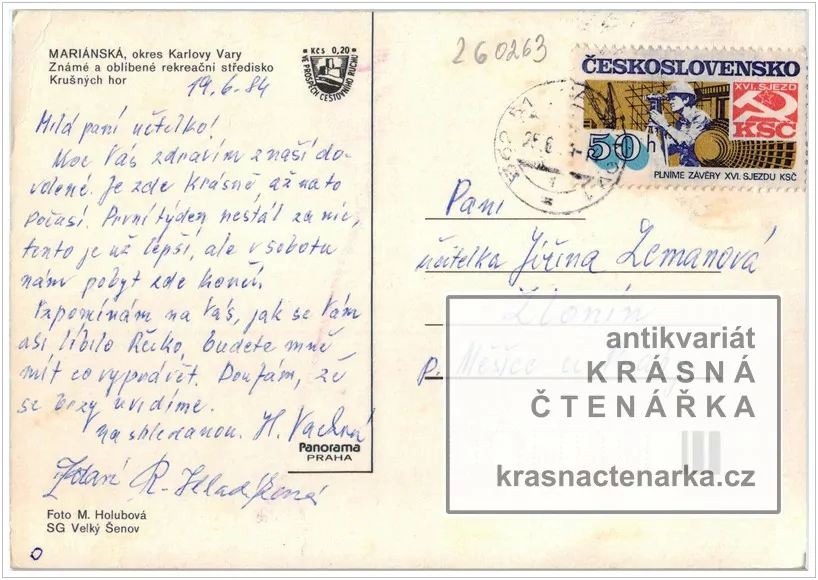 MARIÁNSKÁ, okres Karlovy Vary
Známé a oblíbené rekreační středisko
Krušných hor
19.6.84
Kčs 0,20
VE PROSPĚCH CESTOVNÍHO RUCHU
260263
ČESKOSLOVENSKO
XVI. SJEZD
KSČ
50 h
PLNÍME ZÁVĚRY XVI. SJEZDU KSČ
362 51
Milá paní učitelko!
Moc Vás zdravím z naší do-
volené. Je zde krásně, až na to
počasí. První týden nestál za nic,
tento je už lepší, ale v sobotu
nám pobyt zde končí.
Vzpomínám na Vás, jak se Vám
asi líbilo Řecko, budete mně
mít co vyprávět. Doufám, že
se brzy uvidíme.
Na shledanou. H.
Zdraví R.
Panorama
PRAHA
Foto M. Holubová
SG Velký Šenov
Paní
učitelka Jiřina Zemanová
Zlonín
p. Měšice u Prahy
antikvariát
KRÁSNÁ
ČTENÁŘKA
krasnactenarka.cz